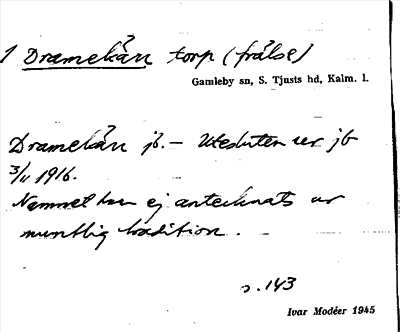 1 Dramekärr torp (frälse)
Gamleby sn, S. Tjusts hd, Kalm. l.
Dramekärr jb. – Utesluten ur jb
3/11 1916.
Namnet har ej antecknats ur
muntlig tradition.
s. 143
Ivar Modéer 1945